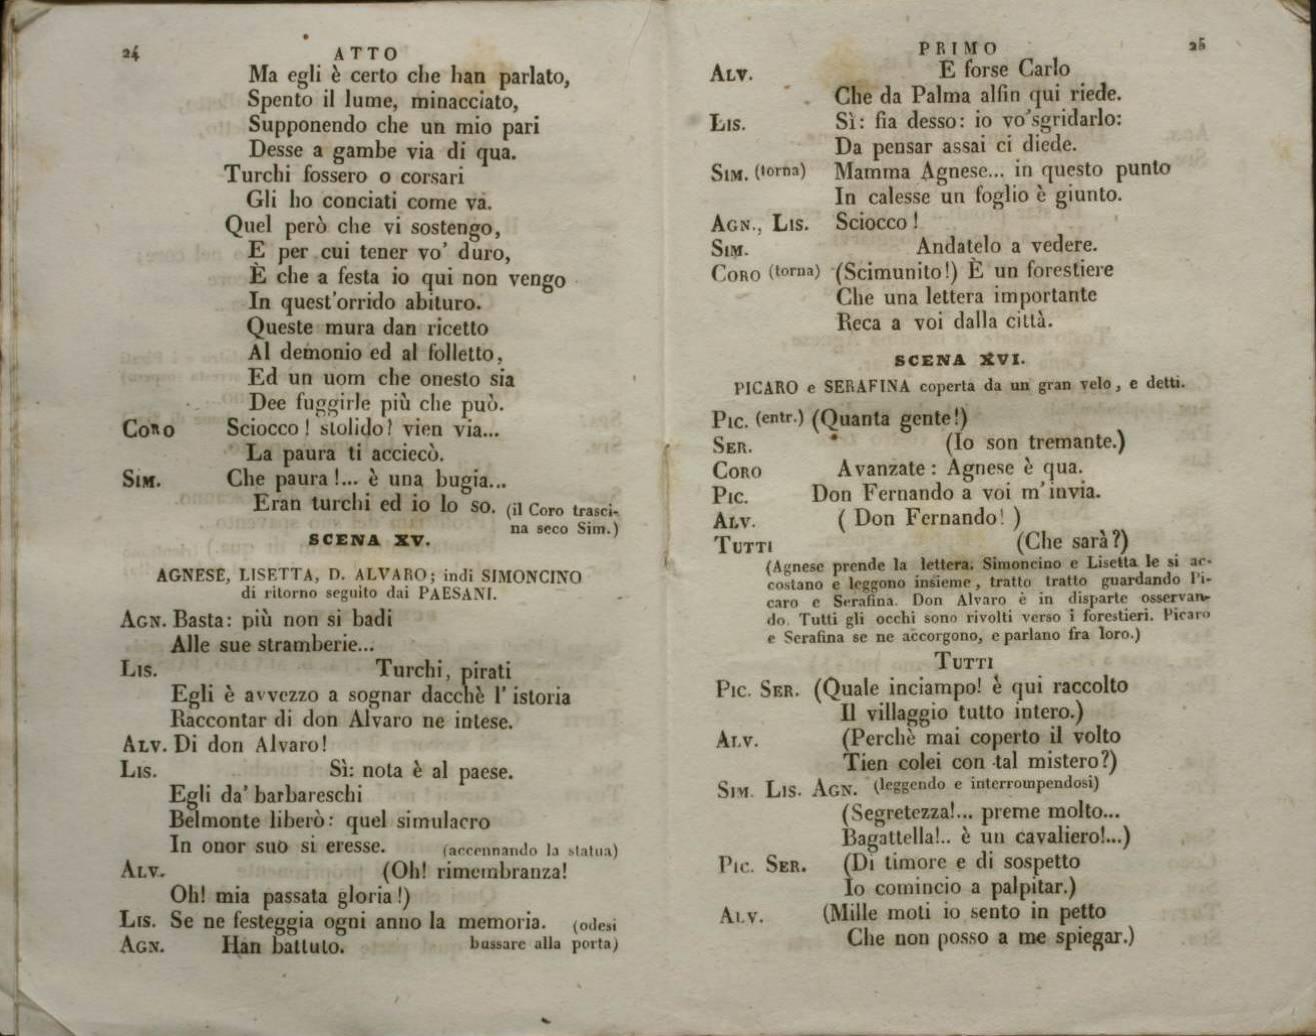 24
ATTO
Ma egli è certo che han parlato,
Spento il lume, minacciato,
Supponendo che un mio pari
Desse a gambe via di qua.
Turchi fossero o corsari
Gli ho conciati come va.
Quel però che vi sostengo,
E per cui tener vo' duro,
È che a festa io qui non vengo
In quest'orrido abituro.
Queste mura dan ricetto
Al demonio ed al folletto,
Ed un uom che onesto sia
Dee fuggirle più che può.
CORO Sciocco! stolido! vien via...
La paura ti acciecò.
SIM. Che paura!... è una bugia...
Eran turchi ed io lo so. (il Coro trasci-
na seco Sim.)
SCENA XV.
AGNESE, LISETTA, D. ALVARO; indi SIMONCINO
di ritorno seguito dai PAESANI.
AGN. Basta: più non si badi
Alle sue stramberie...
LIS. Turchi, pirati
Egli è avvezzo a sognar dacchè l'istoria
Raccontar di don Alvaro ne intese.
ALV. Di don Alvaro!
LIS. Sì: nota è al paese.
Egli da' barbareschi
Belmonte liberò: quel simulacro
In onor suo si eresse. (accennando la statua)
ALV. (Oh! rimembranza!
Oh! mia passata gloria!)
LIS. Se ne festeggia ogni anno la memoria. (odesi
AGN. Han battuto. bussare alla porta)
PRIMO
25
ALV. E forse Carlo
Che da Palma alfin qui riede.
LIS. Sì: fia desso: io vo'sgridarlo:
Da pensar assai ci diede.
SIM. (torna) Mamma Agnese... in questo punto
In calesse un foglio è giunto.
AGN., LIS. Sciocco!
SIM. Andatelo a vedere.
CORO (torna) (Scimunito!) È un forestiere
Che una lettera importante
Reca a voi dalla città.
SCENA XVI.
PICARO e SERAFINA coperta da un gran velo, e detti.
PIC. (entr.) (Quanta gente!)
SER. (Io son tremante.)
CORO Avanzate: Agnese è qua.
PIC. Don Fernando a voi m'invia.
ALV. (Don Fernando!)
TUTTI (Che sarà?)
(Agnese prende la lettera. Simoncino e Lisetta le si ac-
costano e leggono insieme, tratto tratto guardando Pi-
caro e Serafina. Don Alvaro è in disparte osservan-
do. Tutti gli occhi sono rivolti verso i forestieri. Picaro
e Serafina se ne accorgono, e parlano fra loro.)
TUTTI
PIC. SER. (Quale inciampo! è qui raccolto
Il villaggio tutto intero.)
ALV. (Perchè mai coperto il volto
Tien colei con tal mistero?)
SIM. LIS. AGN. (leggendo e interrompendosi)
(Segretezza!... preme molto...
Bagattella!.. è un cavaliero!...)
PIC. SER. (Di timore e di sospetto
Io comincio a palpitar.)
ALV. (Mille moti io sento in petto
Che non posso a me spiegar.)